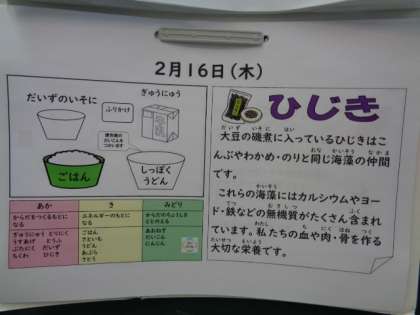 2月16日(木)
だいずのいそに
ふりかけ
ぎゅうにゅう
ごはん
しっぽく
うどん
ひじき
大豆の磯煮に入っているひじきはこ
んぶやわかめ・のりと同じ海藻の仲間
です。
これらの海藻にはカルシウムやヨー
ド・鉄などの無機質がたくさん含まれ
ています。私たちの血や肉・骨を作る
大切な栄養です。
あか
き
みどり
からだをつくるもとに
なる
エネルギーのもとに
なる
からだのちょうしを
ととのえる
ぎゅうにゅう とりにく
うすあげ とうふ
ぶたにく だいず
ちくわ ひじき
ごはん
さといも
うどん
あぶら
さとう
あおねぎ
だいこん
にんじん